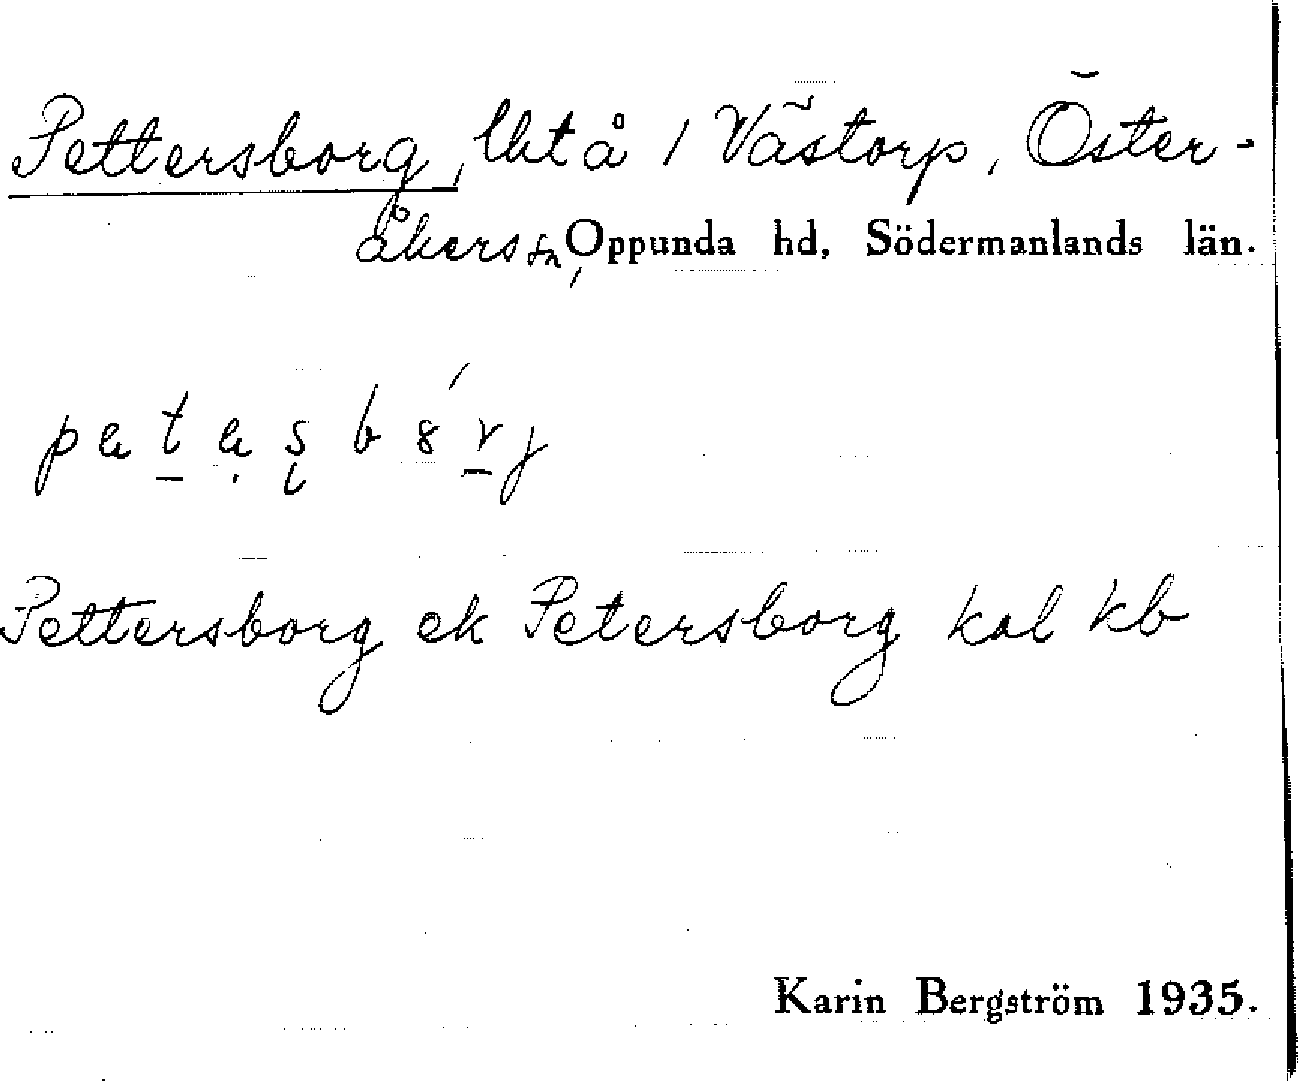 Pettersborg, lht å 1 Västorp, Öster-
åkers sn, Oppunda hd, Södermanlands län.
Pettersborg ek Petersborg kal kb
Karin Bergström 1935.